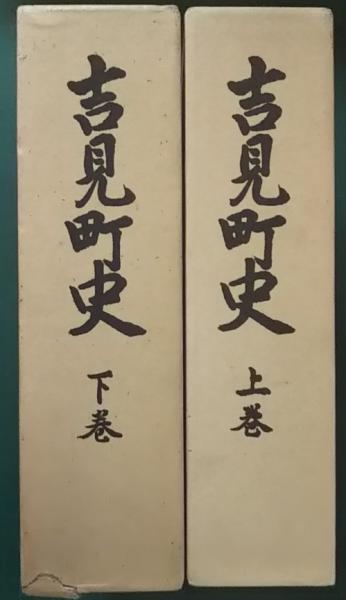 吉見町史
上巻
吉見町史
下巻